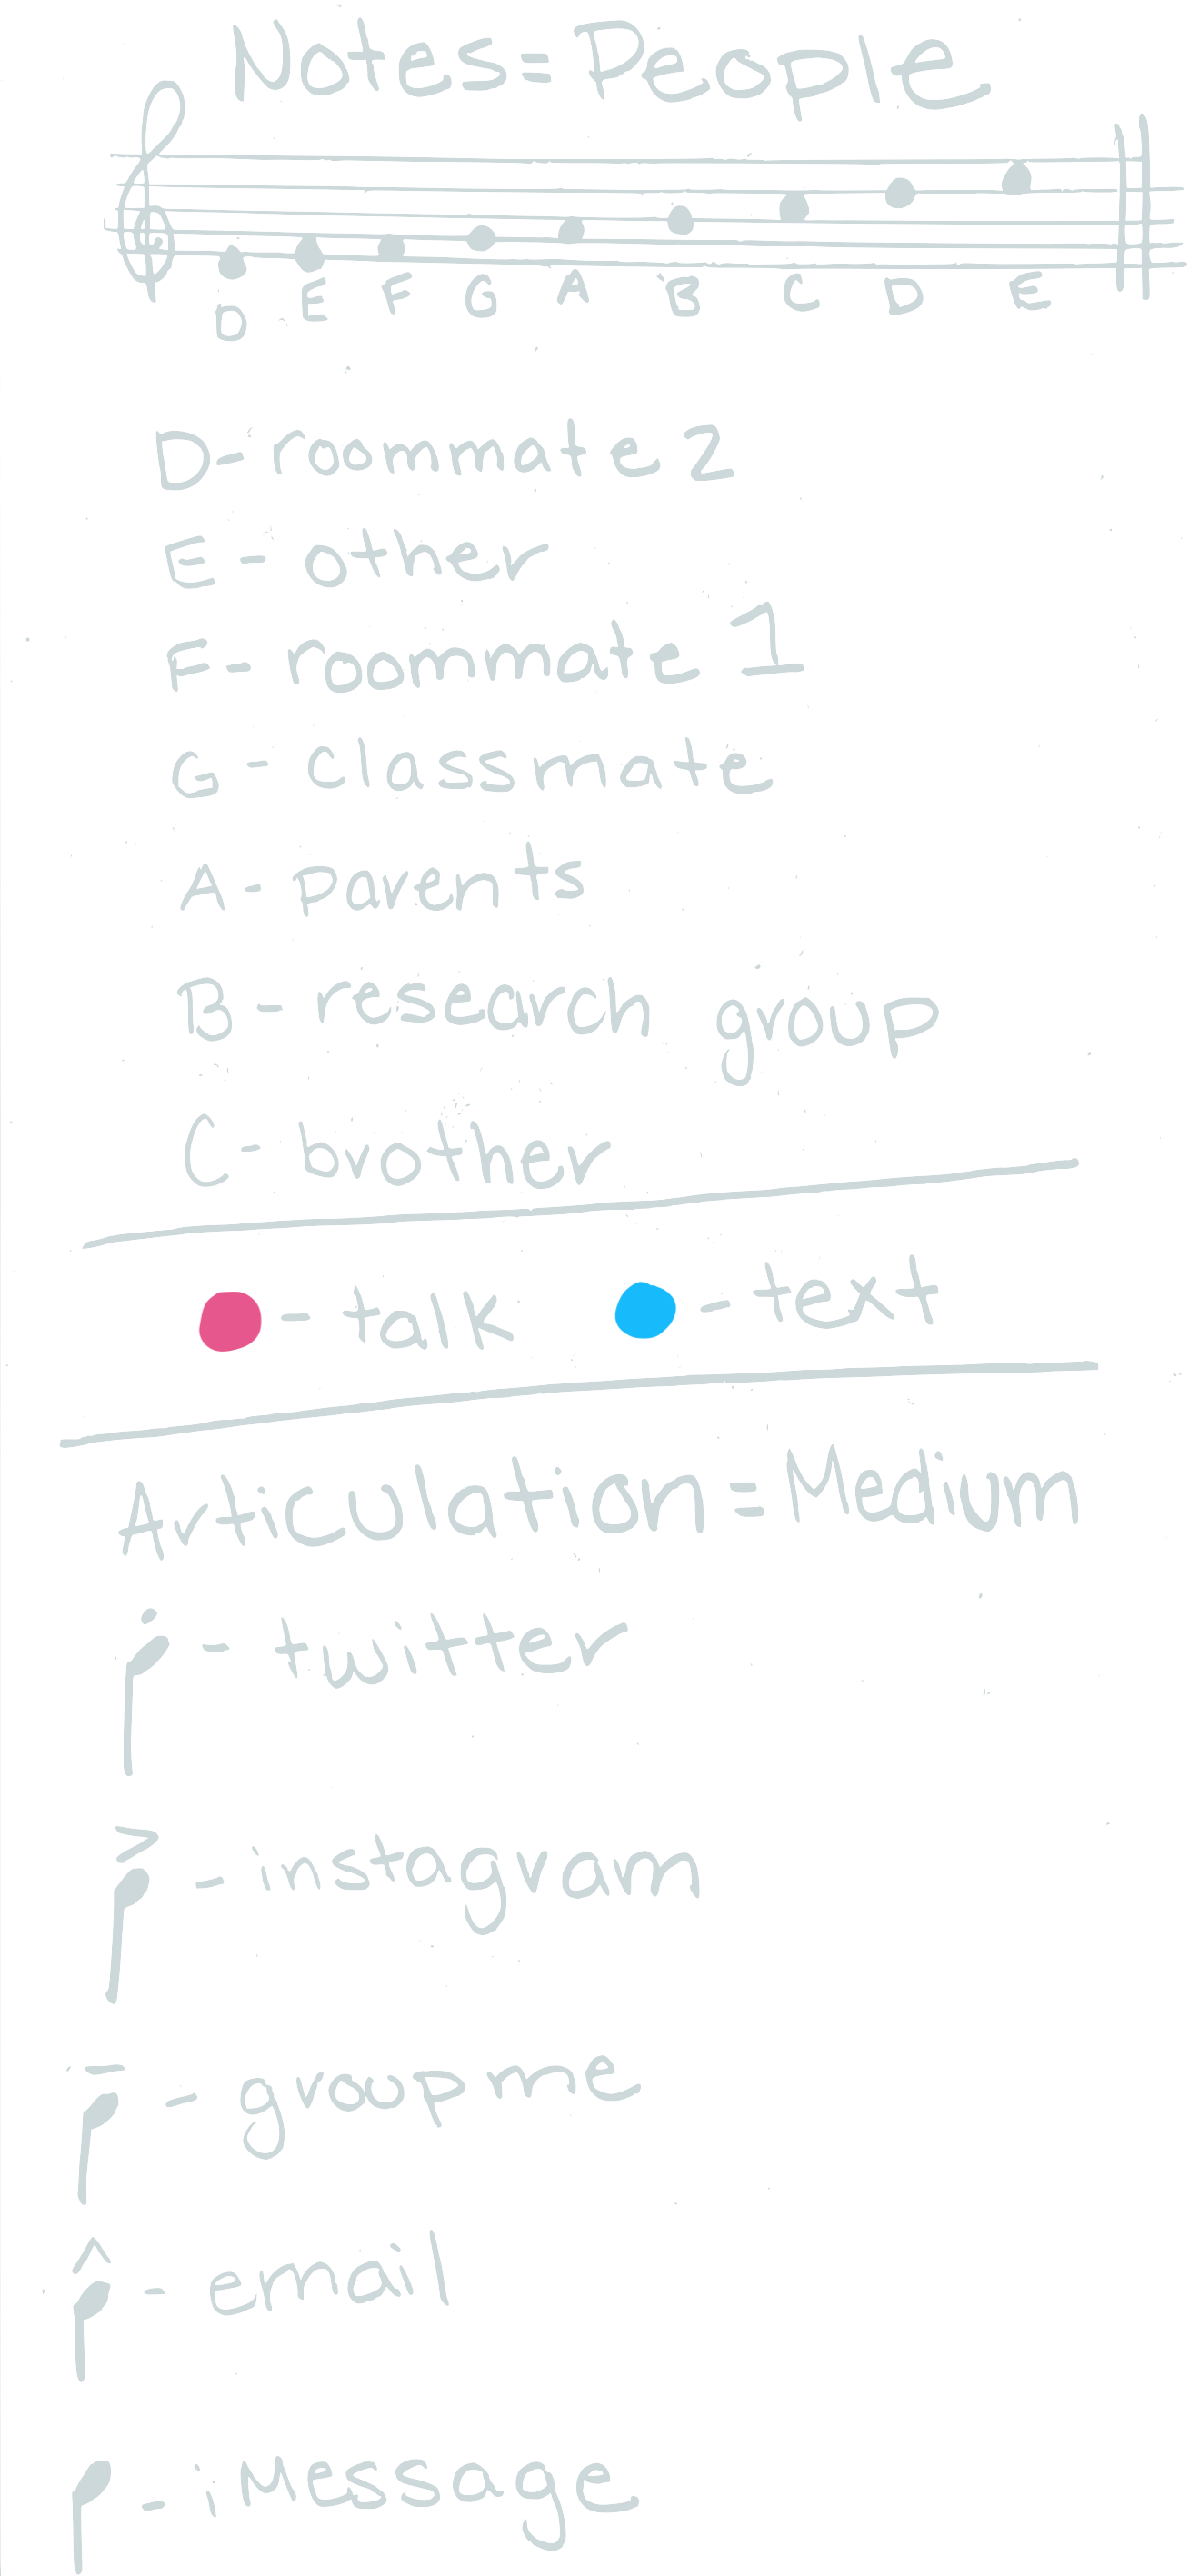 Notes=People
D E F G A B C D E
D-roommate 2
E-other
F-roommate 1
G-classmate
A-parents
B-research group
C-brother
-talk -text
Articulation=Medium
-twitter
-instagram
-groupme
-email
-iMessage